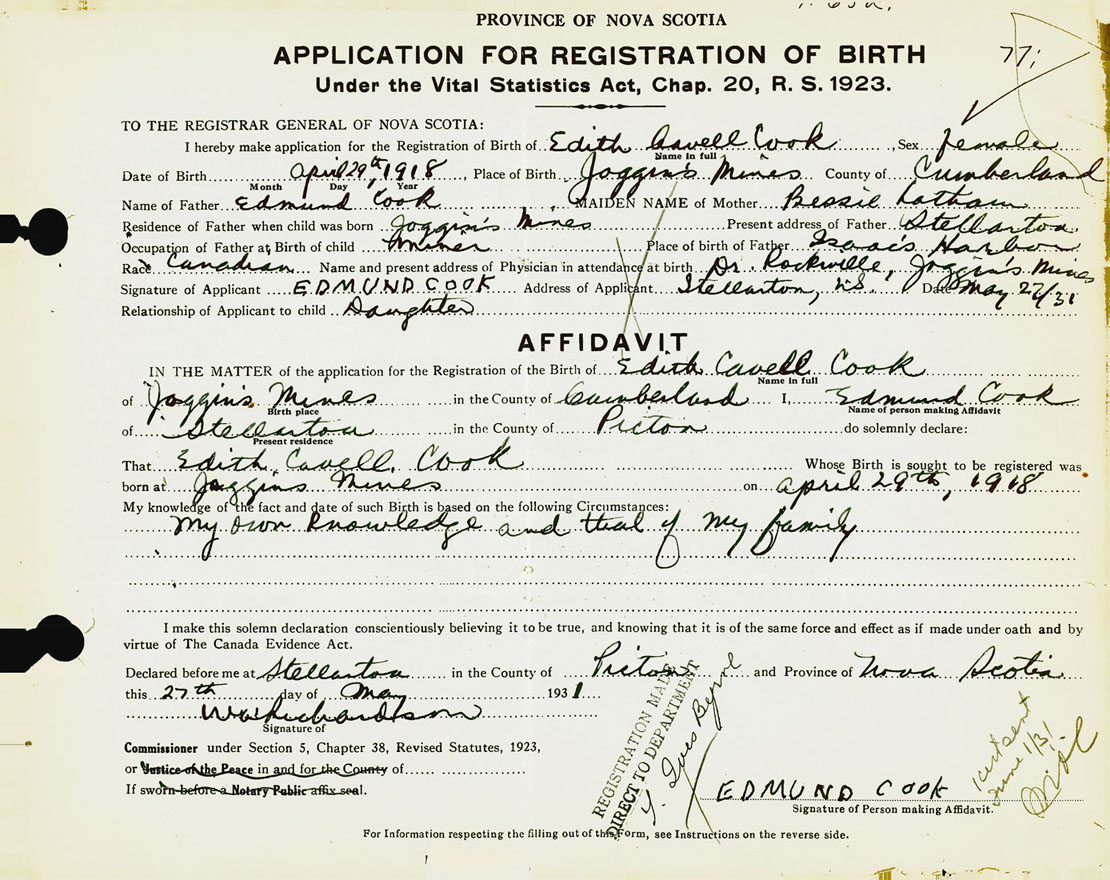 PROVINCE OF NOVA SCOTIA
APPLICATION FOR REGISTRATION OF BIRTH
77;
Under the Vital Statistics Act, Chap. 20, R. S. 1923.
TO THE REGISTRAR GENERAL OF NOVA SCOTIA:
I hereby make application for the Registration of Birth of Edith Cavell Cook, Sex Female
Name in full
Date of Birth April 29th, 1918, Place of Birth Joggin's Mines County of Cumberland
Month Day Year
Name of Father Edmund Cook MAIDEN NAME of Mother Bessie Latham
Residence of Father when child was born Joggin's Mines Present address of Father Stellarton
Occupation of Father at Birth of child Miner Place of birth of Father Isaac's Harbor
Race Canadian Name and present address of Physician in attendance at birth Dr. Rockville, Joggin's Mines
Signature of Applicant EDMUND COOK Address of Applicant Stellarton, N.S. Date May 27/31
Relationship of Applicant to child Daughter
AFFIDAVIT
IN THE MATTER of the application for the Registration of the Birth of Edith Cavell Cook
Name in full
of Joggin's Mines in the County of Cumberland I, Edmund Cook
Birth place Name of person making Affidavit
of Stellarton in the County of Picton do solemnly declare:
Present residence
That Edith Cavell Cook Whose Birth is sought to be registered was
born at Joggins Mines on April 29th, 1918
My knowledge of the fact and date of such Birth is based on the following Circumstances:
My own knowledge and that of my family
I make this solemn declaration conscientiously believing it to be true, and knowing that it is of the same force and effect as if made under oath and by
virtue of The Canada Evidence Act.
Declared before me at Stellarton in the County of Picton and Province of Nova Scotia
this 27th day of May 1931
Richardson
Signature of
Commissioner under Section 5, Chapter 38, Revised Statutes, 1923,
or Justice of the Peace in and for the County of
If sworn before a Notary Public affix seal.
REGISTRATION MADE
DIRECT TO DEPARTMENT
EDMUND COOK
Signature of Person making Affidavit.
sent
June 1/31
For Information respecting the filling out of this Form, see Instructions on the reverse side.